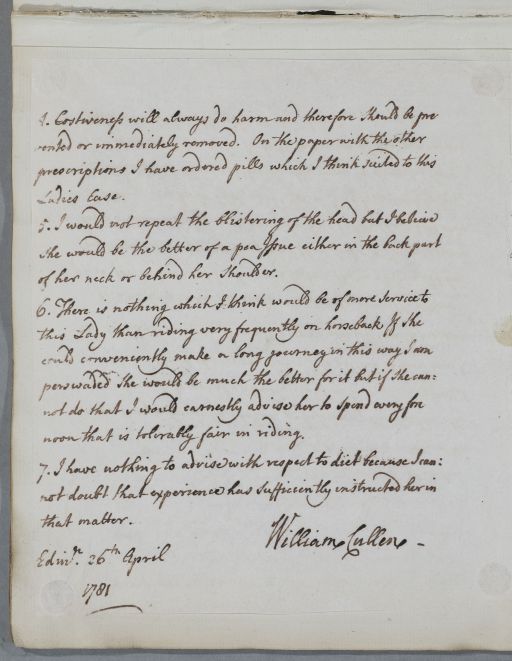 4. Costiveness will always do harm and therefore should be pre
vented or immediately removed. On the paper with the other
prescriptions I have ordered pills which I think suited to this
Ladies Case.
5. I would not repeat the blistering of the head but I believe
she would be the better of a pea Issue either in the back part
of her neck or behind her Shoulder.
6. There is nothing which I think would be of more Service to
this Lady than riding very frequently on horseback If She
could conveniently make a long journey in this way I am
perswaded She would be much the better for it but if She can:
not do that I would earnestly advise her to Spend every fore
noon that is tolerably fair in riding.
7. I have nothing to advise with respect to diet because I can:
not doubt that experience has Sufficiently instructed her in
that matter.
William Cullen
Edinr. 26th April
1781